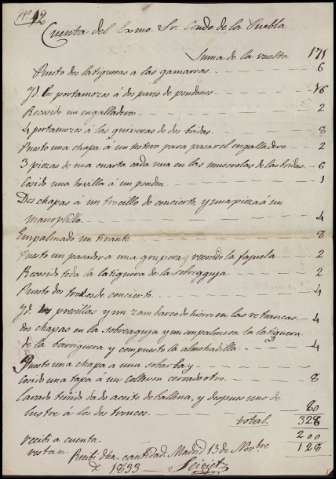 Nº 12
Cuenta del Exmo Sr Conde de la Puebla
Suma de la vuelta 171
Puesto dos latiguras a las gamarras 6
Yd. portamozas á dos pares de 16
Recosido un engalladero 2
4 portamozas á las guruperas de dos bridas 8
Puesto una chapa á un para pasar el engalladero 2
3 piezas de una cuarta cada una en las muserolas de las bridas 6
Cosido una trvilla á un 1
Dos chapas a un troncillo de concierto y una pieza á un
manoplillo 4
Empalmado un tirante 8
Puesto un pasador a una grupera y recosido la 2
Recosido toda la latiguera de la sobreguija 2
Puesto dos de concierto 4
Yd. dos provillas y un zambarco de hierro en las retrancas 4
dos chapas en la sobreaguja y un empalme en la latiguera
de la barriguera y compuesto la almohadilla 4
Puesto una chapa a una y
cosido una tapa á un collerón 8
Lavado teñido dado de aceite de ballena, y despues uno de
lustre á las dos troncos 80
total 328
recibi a cuenta 200
restan 128
Recibi dha cantidad Madrid 13 de Novbre
de 1833